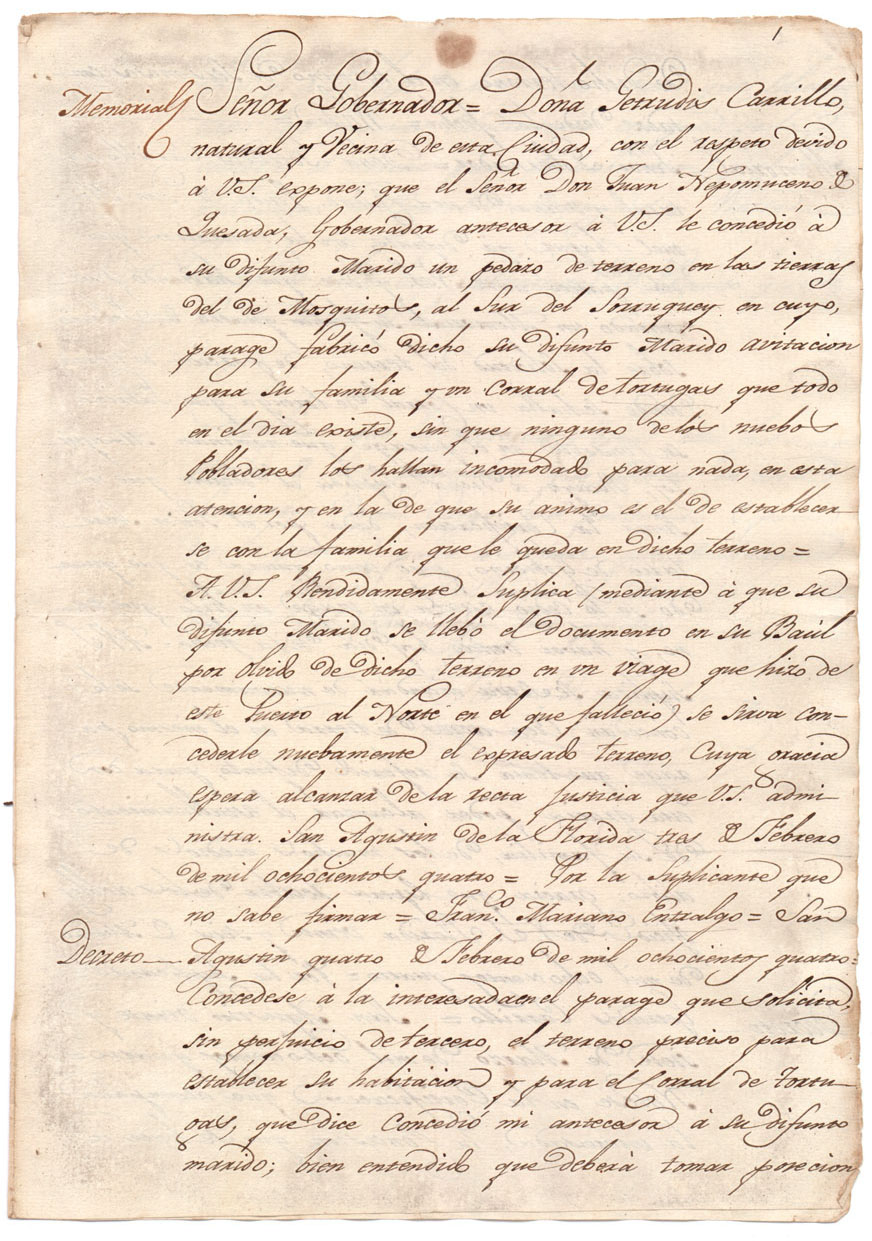 1
Memorial Señor Gobernador = Doña Getrudis Carrillo,
natural y Vecina de esta Ciudad, con el respeto devido
à V.S. expone; que el Señor Don Juan Nepomuceno de
Quesada, Gobernador antecesor à V.S. le concedió à
su difunto Marido un pedazo de terreno en las tierras
del de Mosquitos, al Sur del Sorruquey en cuyo,
parage fabricó dicho su difunto Marido avitacion
para su familia y un corral de tortugas que todo
en el dia existe, sin que ninguno de los nuebos
Pobladores los hallan incomodado para nada, en esta
atencion, y en la de que su animo es el de establecer-
se con la familia que le queda en dicho terreno =
A. V.S. Rendidamente Suplica (mediante à que su
difunto Marido se llebó el documento en su Baúl
por olvido de dicho terreno en un viage que hizo de
este Puerto al Norte en el que falleció) se sirva con-
cederle nuebamente el expresado terreno, Cuya gracia
espera alcanzar de la recta Justicia que V.S. admi-
nistra. San Agustin de la Florida tres de Febrero
de mil ochocientos quatro = Por la Suplicante que
no sabe firmar = Fran.co Mariano Entralgo = San
Decreto Agustin quatro de Febrero de mil ochocientos quatro.
Concedese à la interesada en el parage que solicita,
sin perjuicio de tercero, el terreno preciso para
establecer su habitacion y para el Corral de tortu-
gas, que dice concedió mi antecesor à su difunto
marido; bien entendido que deberà tomar posecion